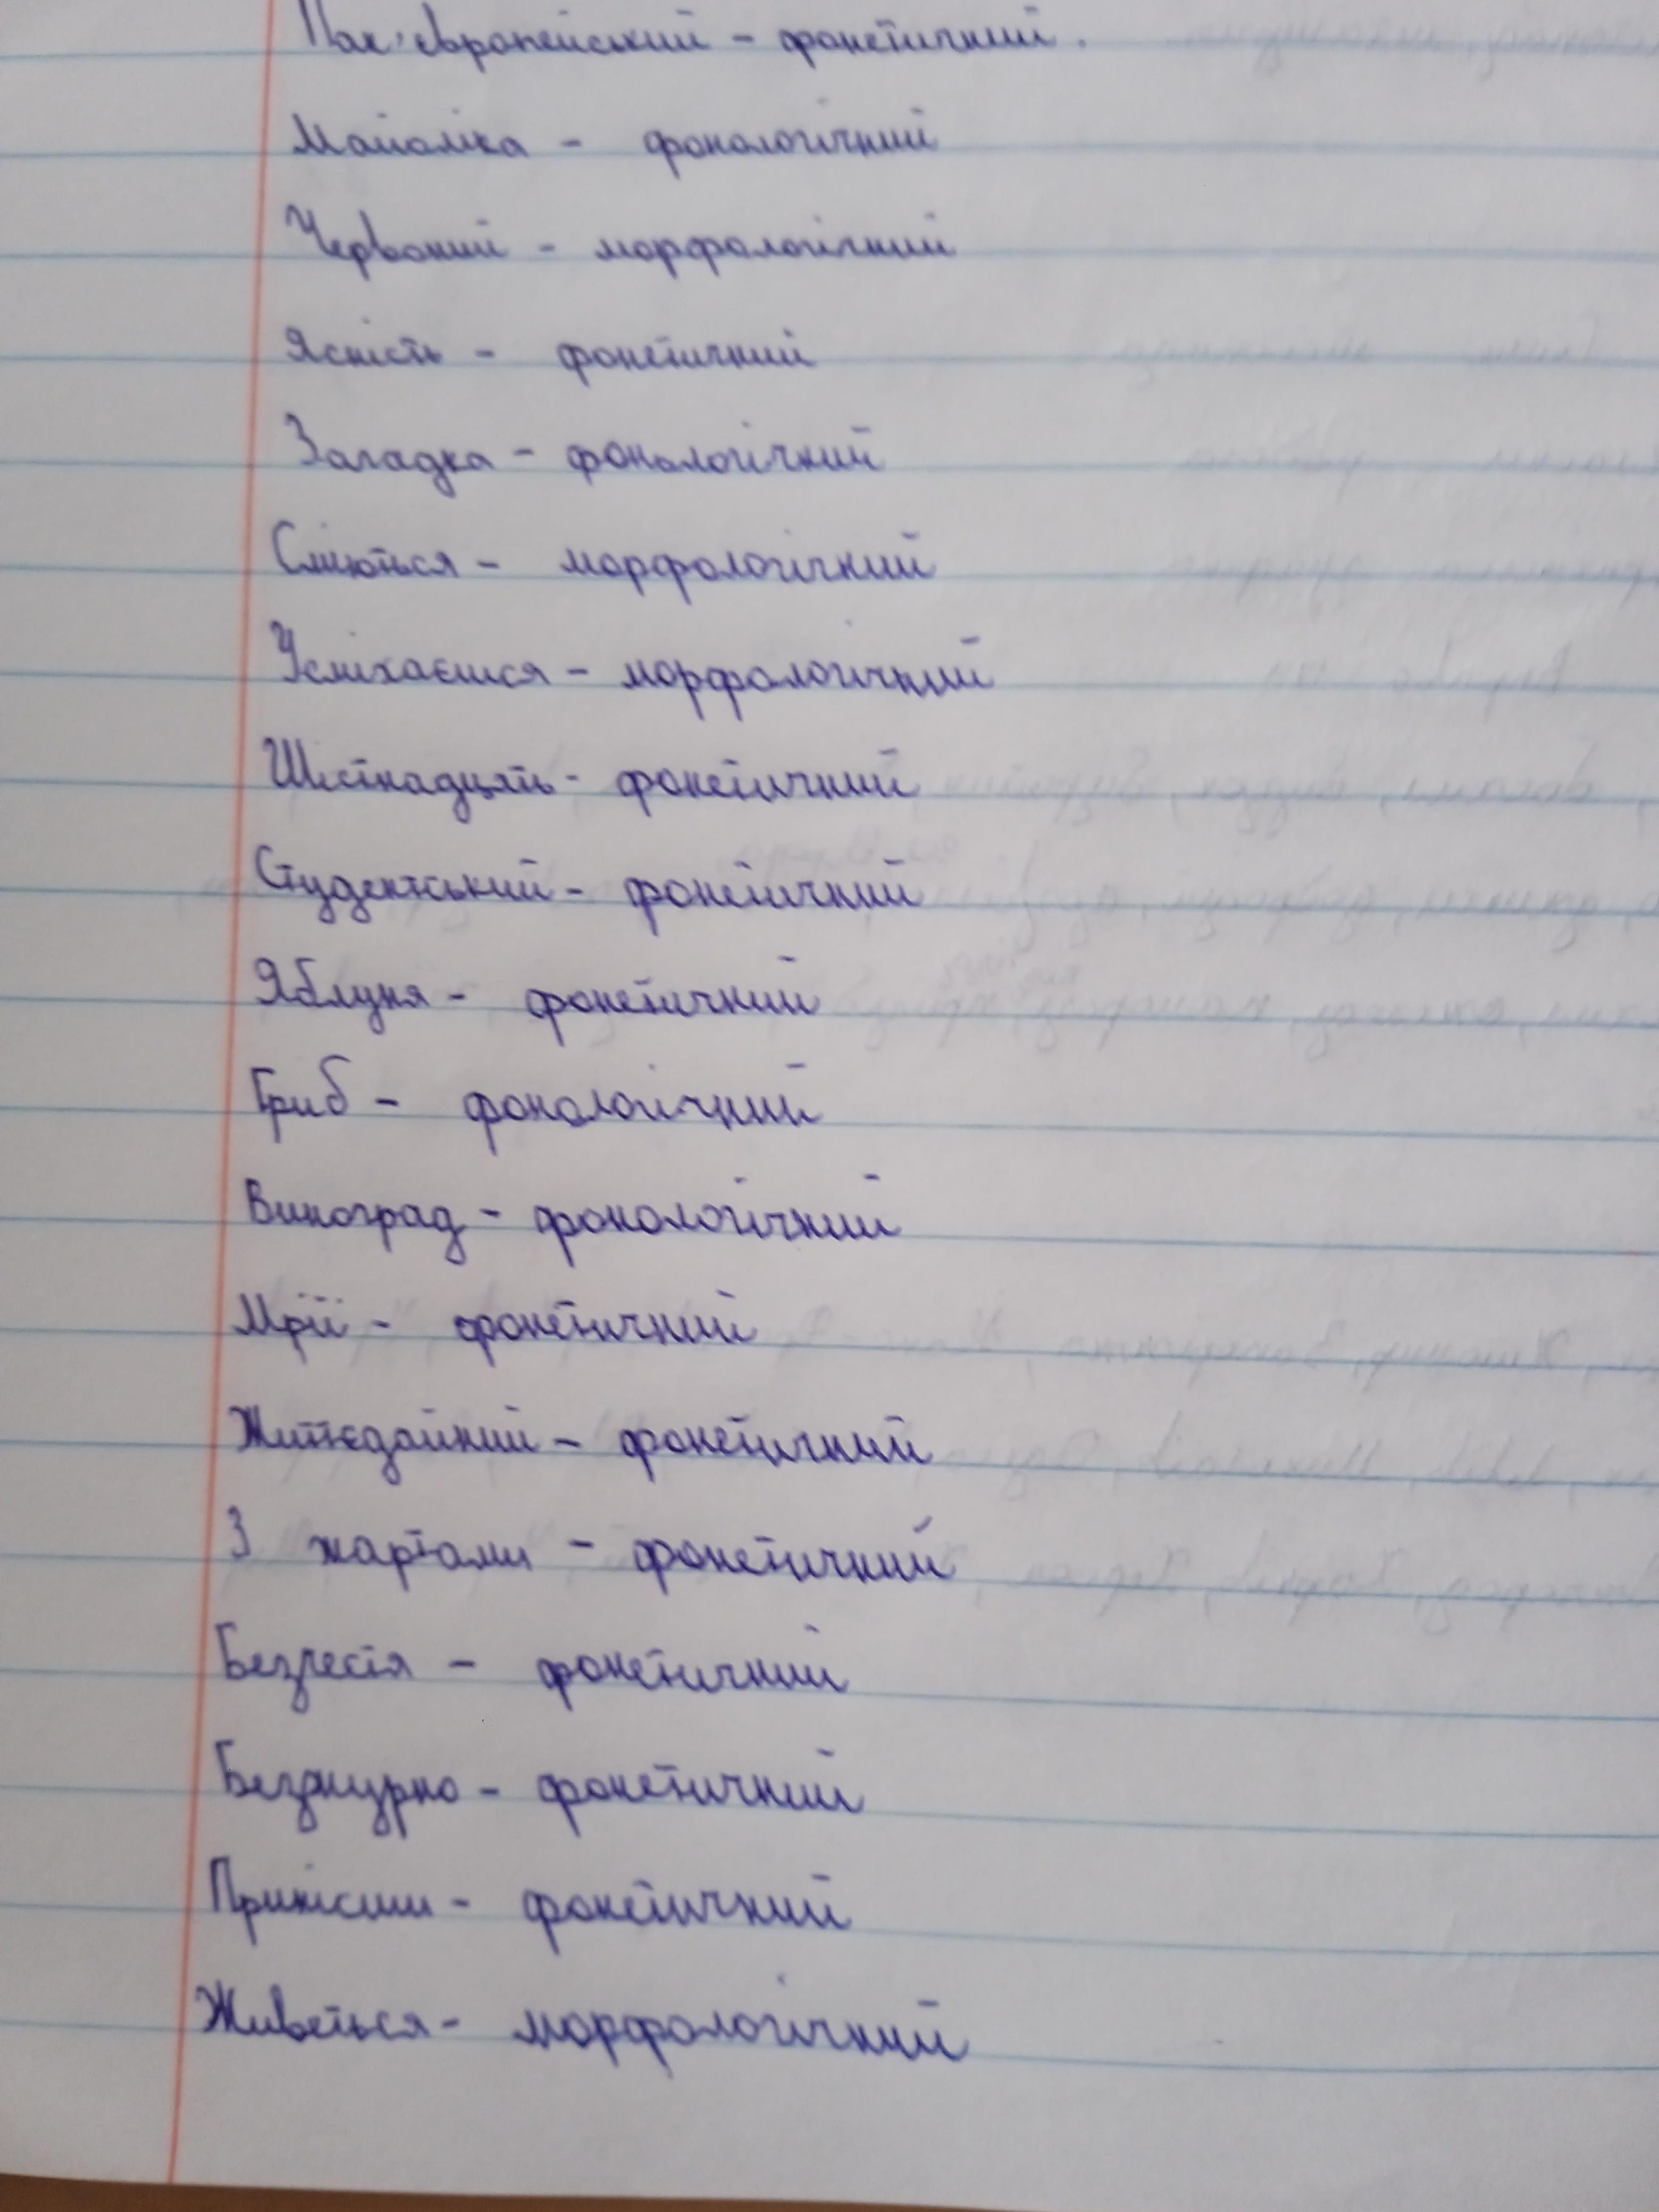 Пан'європейський - фонетичний.
Майоліка - фонологічний
Червоний - морфологічний
Ясність - фонетичний
Загадка - фонологічний
Сміються - морфологічний
Усміхаєшся - морфологічний
Шістнадцять - фонетичний
Студентський - фонетичний
Яблуня - фонетичний
Гриб - фонологічний
Виноград - фонологічний
Мрії - фонетичний
Життєдайний - фонетичний
З жартами - фонетичний
Безчестя - фонетичний
Безжурно - фонетичний
Принісши - фонетичний
Живеться - морфологічний